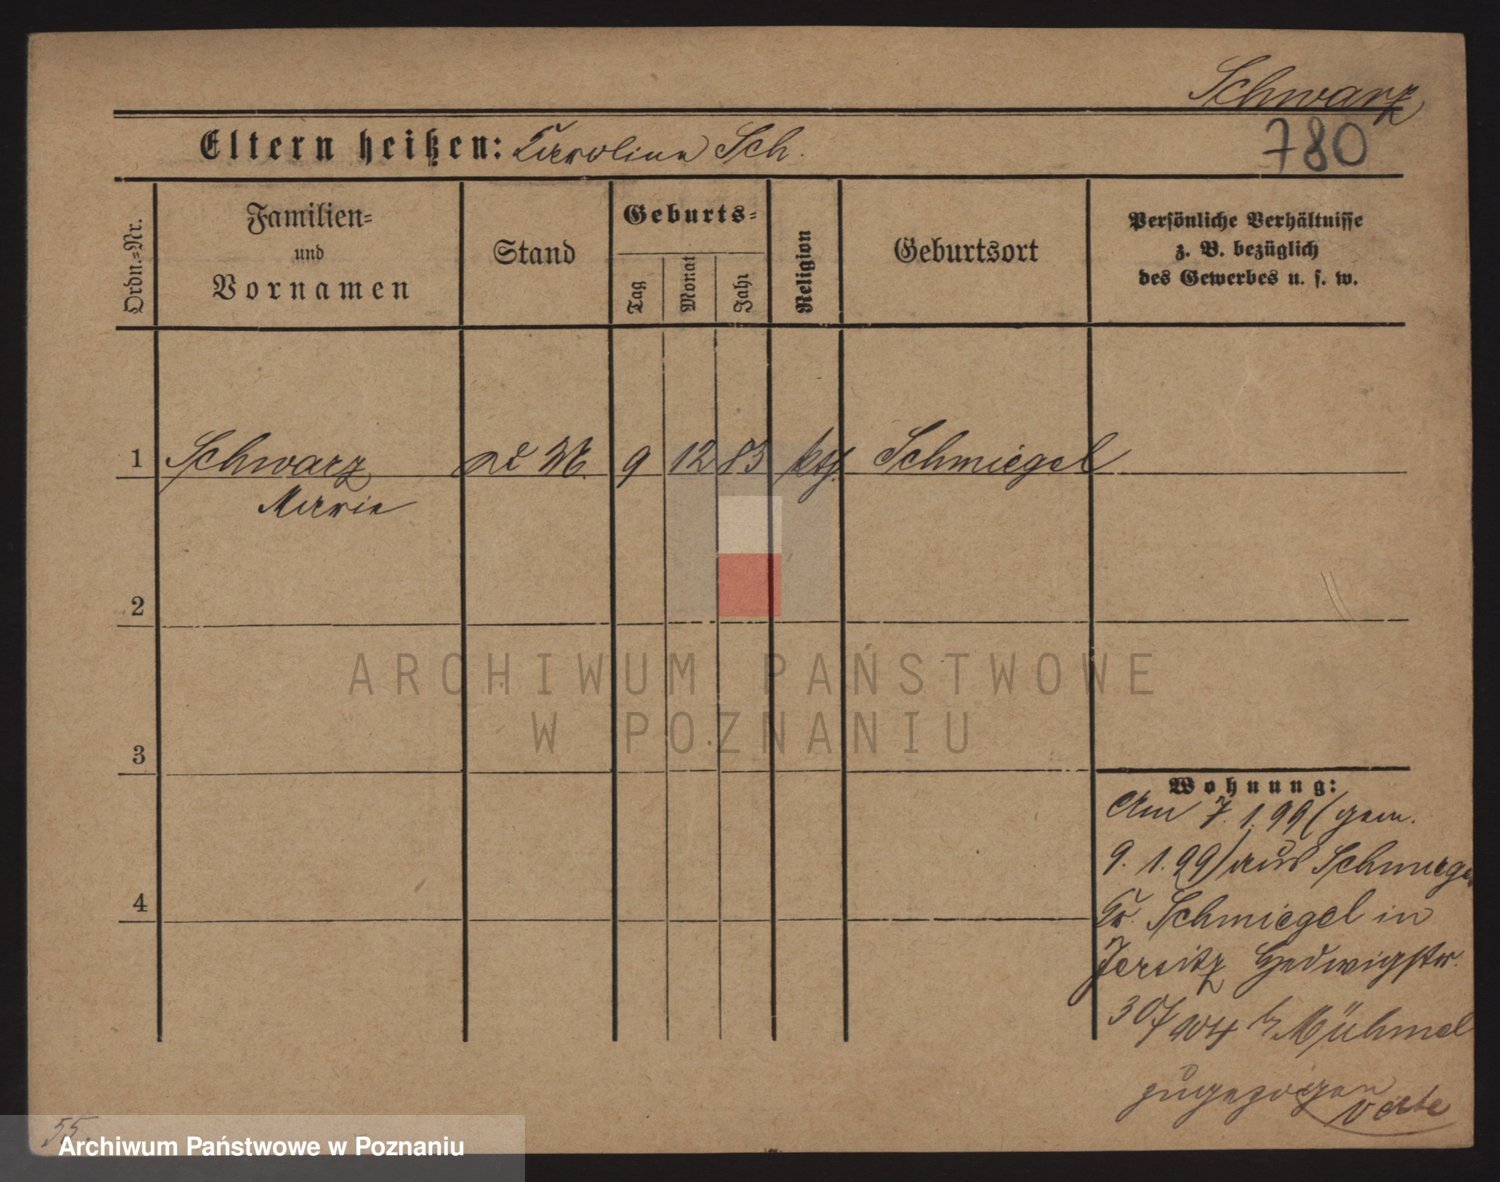 Schwarz
780
Eltern heißen: Caroline Sch.
Ordn.-Nr.
Familien- und Vornamen
Stand
Geburts-
Tag
Monat
Jahr
Religion
Geburtsort
Persönliche Verhältnisse
z. B. bezüglich
des Gewerbes u. s. w.
1 Schwarz 9 12 83 kth. Schmiegel
Marie
2
3
4
Wohnung:
Am 7. 1. 99 (gem.
9. 1. 99) aus
Kr. Schmiegel in
Jersitz Hedwigstr.
30/ b/ Mühmel
zugezogen
verte
55.
ARCHIWUM PAŃSTWOWE
W POZNANIU
Archiwum Państwowe w Poznaniu